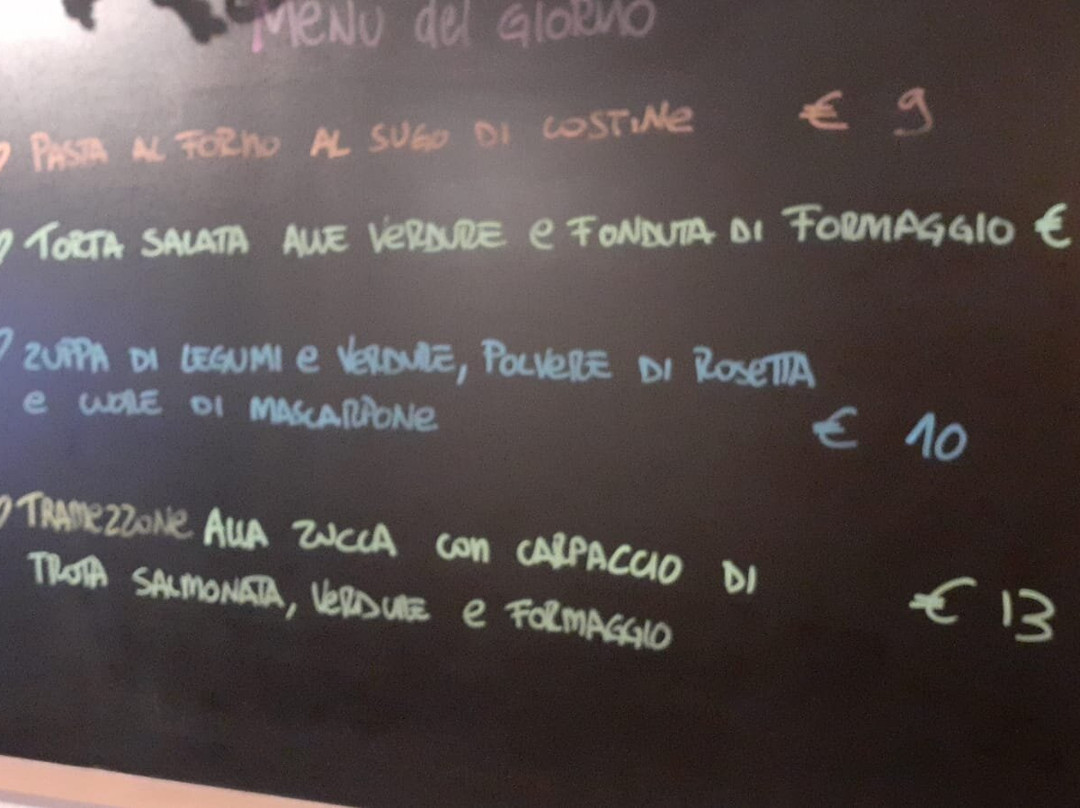 MENU del GIORNO
PASTA AL FORNO AL SUGO DI COSTINE € 9
TORTA SALATA ALLE VERDURE e FONDUTA DI FORMAGGIO €
ZUPPA DI LEGUMI e VERDURE, POLVERE DI ROSETTA
e CUORE DI MASCARPONE € 10
TRAMEZZONE ALLA ZUCCA con CARPACCIO DI
TROTA SALMONATA, VERDURE e FORMAGGIO € 13